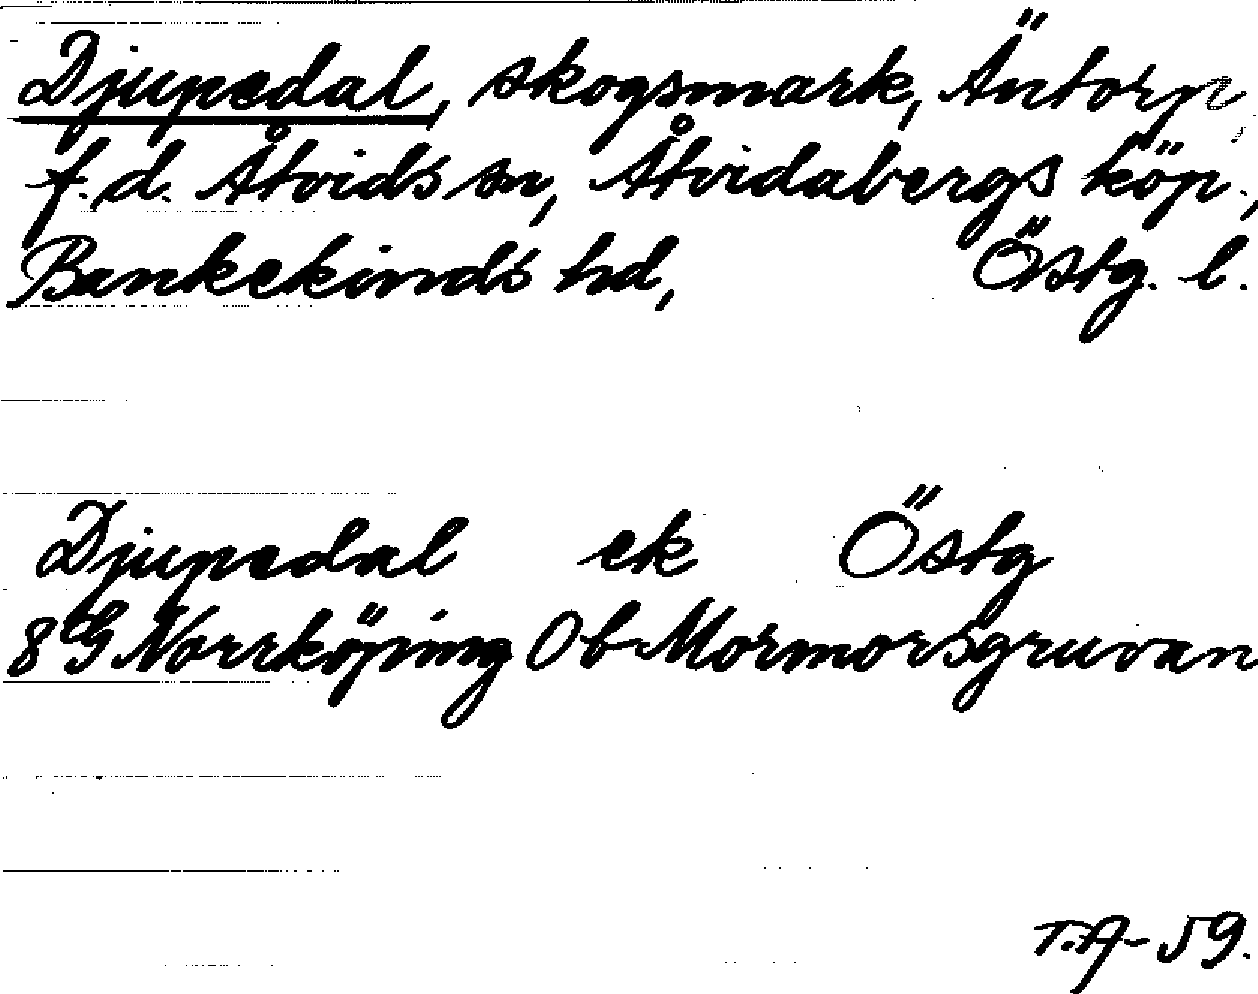 Djupedal, skogsmark, Äntorp
f.d. Åtvids sn, Åtvidabergs köp.,
Bankekinds hd, Östg. l.
Djupedal ek Östg
8 G Norrköping 0 b Mormorsgruvan
T.A-59.